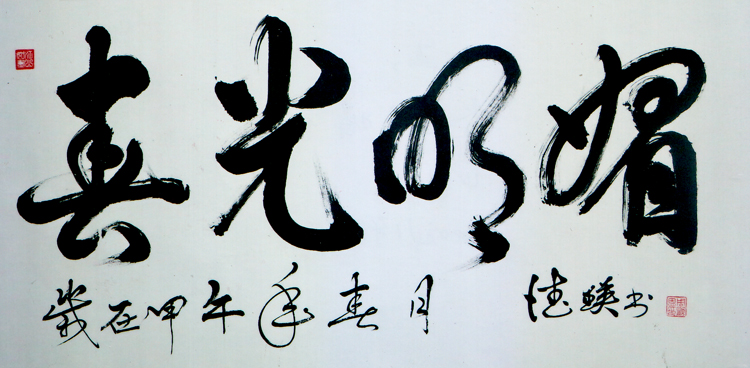 春光明媚
歲在甲午年春月 德瑛书